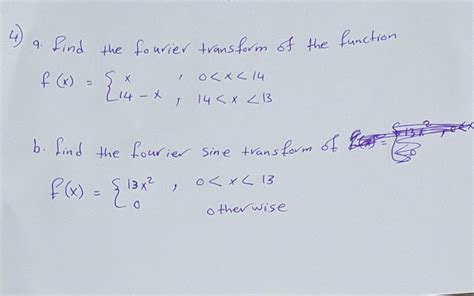 4) a. find the fourier transform of the function
f(x) = { x , 0<x<14
14-x , 14<x<13
b. find the fourier sine transform of
f(x) = { 13x² , 0<x<13
0 otherwise